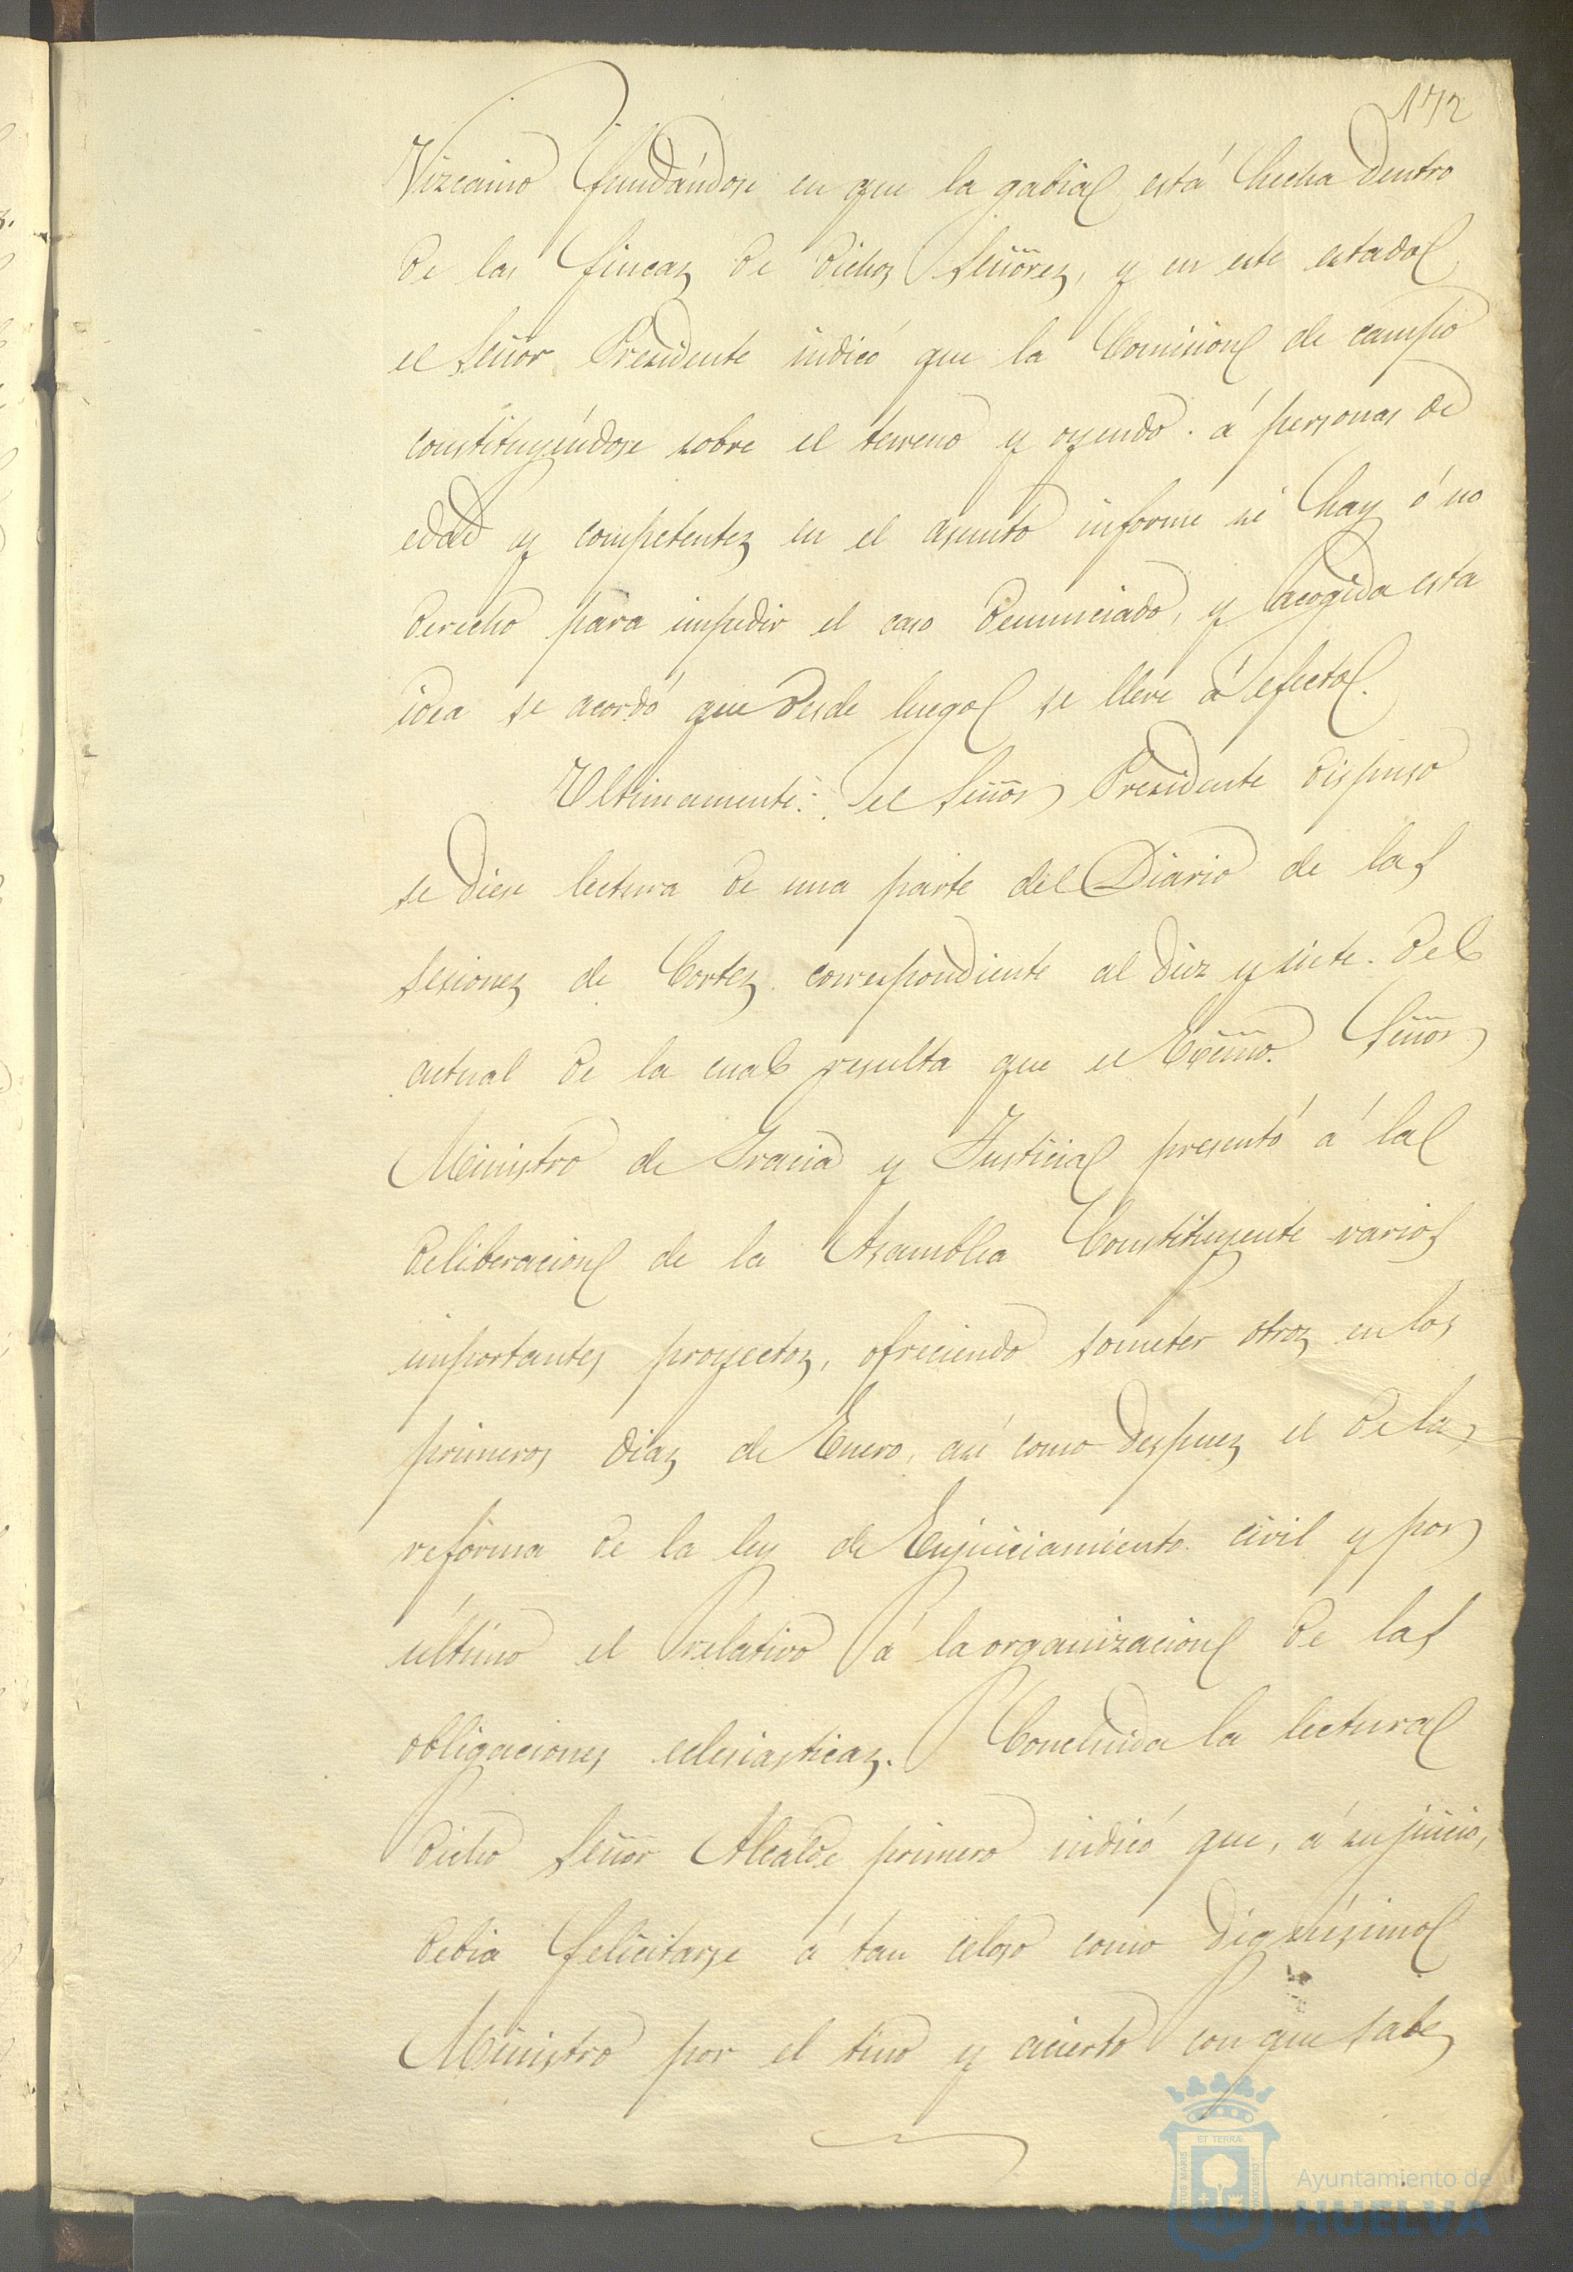 172
Vizcaino fundándose en que la gabia está hecha dentro
de las fincas de dichos Señores, y en este estado
el Señor Presidente indicó que la Comision de campo
constituyéndose sobre el terreno y oyendo á personas de
edad y competentes en el asunto informe si hay ó no
derecho para impedir el caso denunciado, y acogida esta
idea se acordó que desde luego se lleve á efecto.
Ultimamente: el Señor Presidente dispuso
se diese lectura de una parte del Diario de las
sesiones de Cortes correspondiente al diez y siete del
actual de la cual resulta que el Excmo. Señor
Ministro de Gracia y Justicia presentó á la
deliberacion de la Asamblea Constituyente varios
importantes proyectos, ofreciendo someter otros en los
primeros dias de Enero, asi como despues el de la
reforma de la ley de Enjuiciamiento civil y por
último el relativo á la organizacion de las
obligaciones eclesiasticas. Concluida la lectura
dicho Señor Alcalde primero indicó que, á su juicio,
debia felicitarse á tan celoso como dignísimo
Ministro por el tino y acierto con que sabe
ET TERRA
Ayuntamiento de
HUELVA